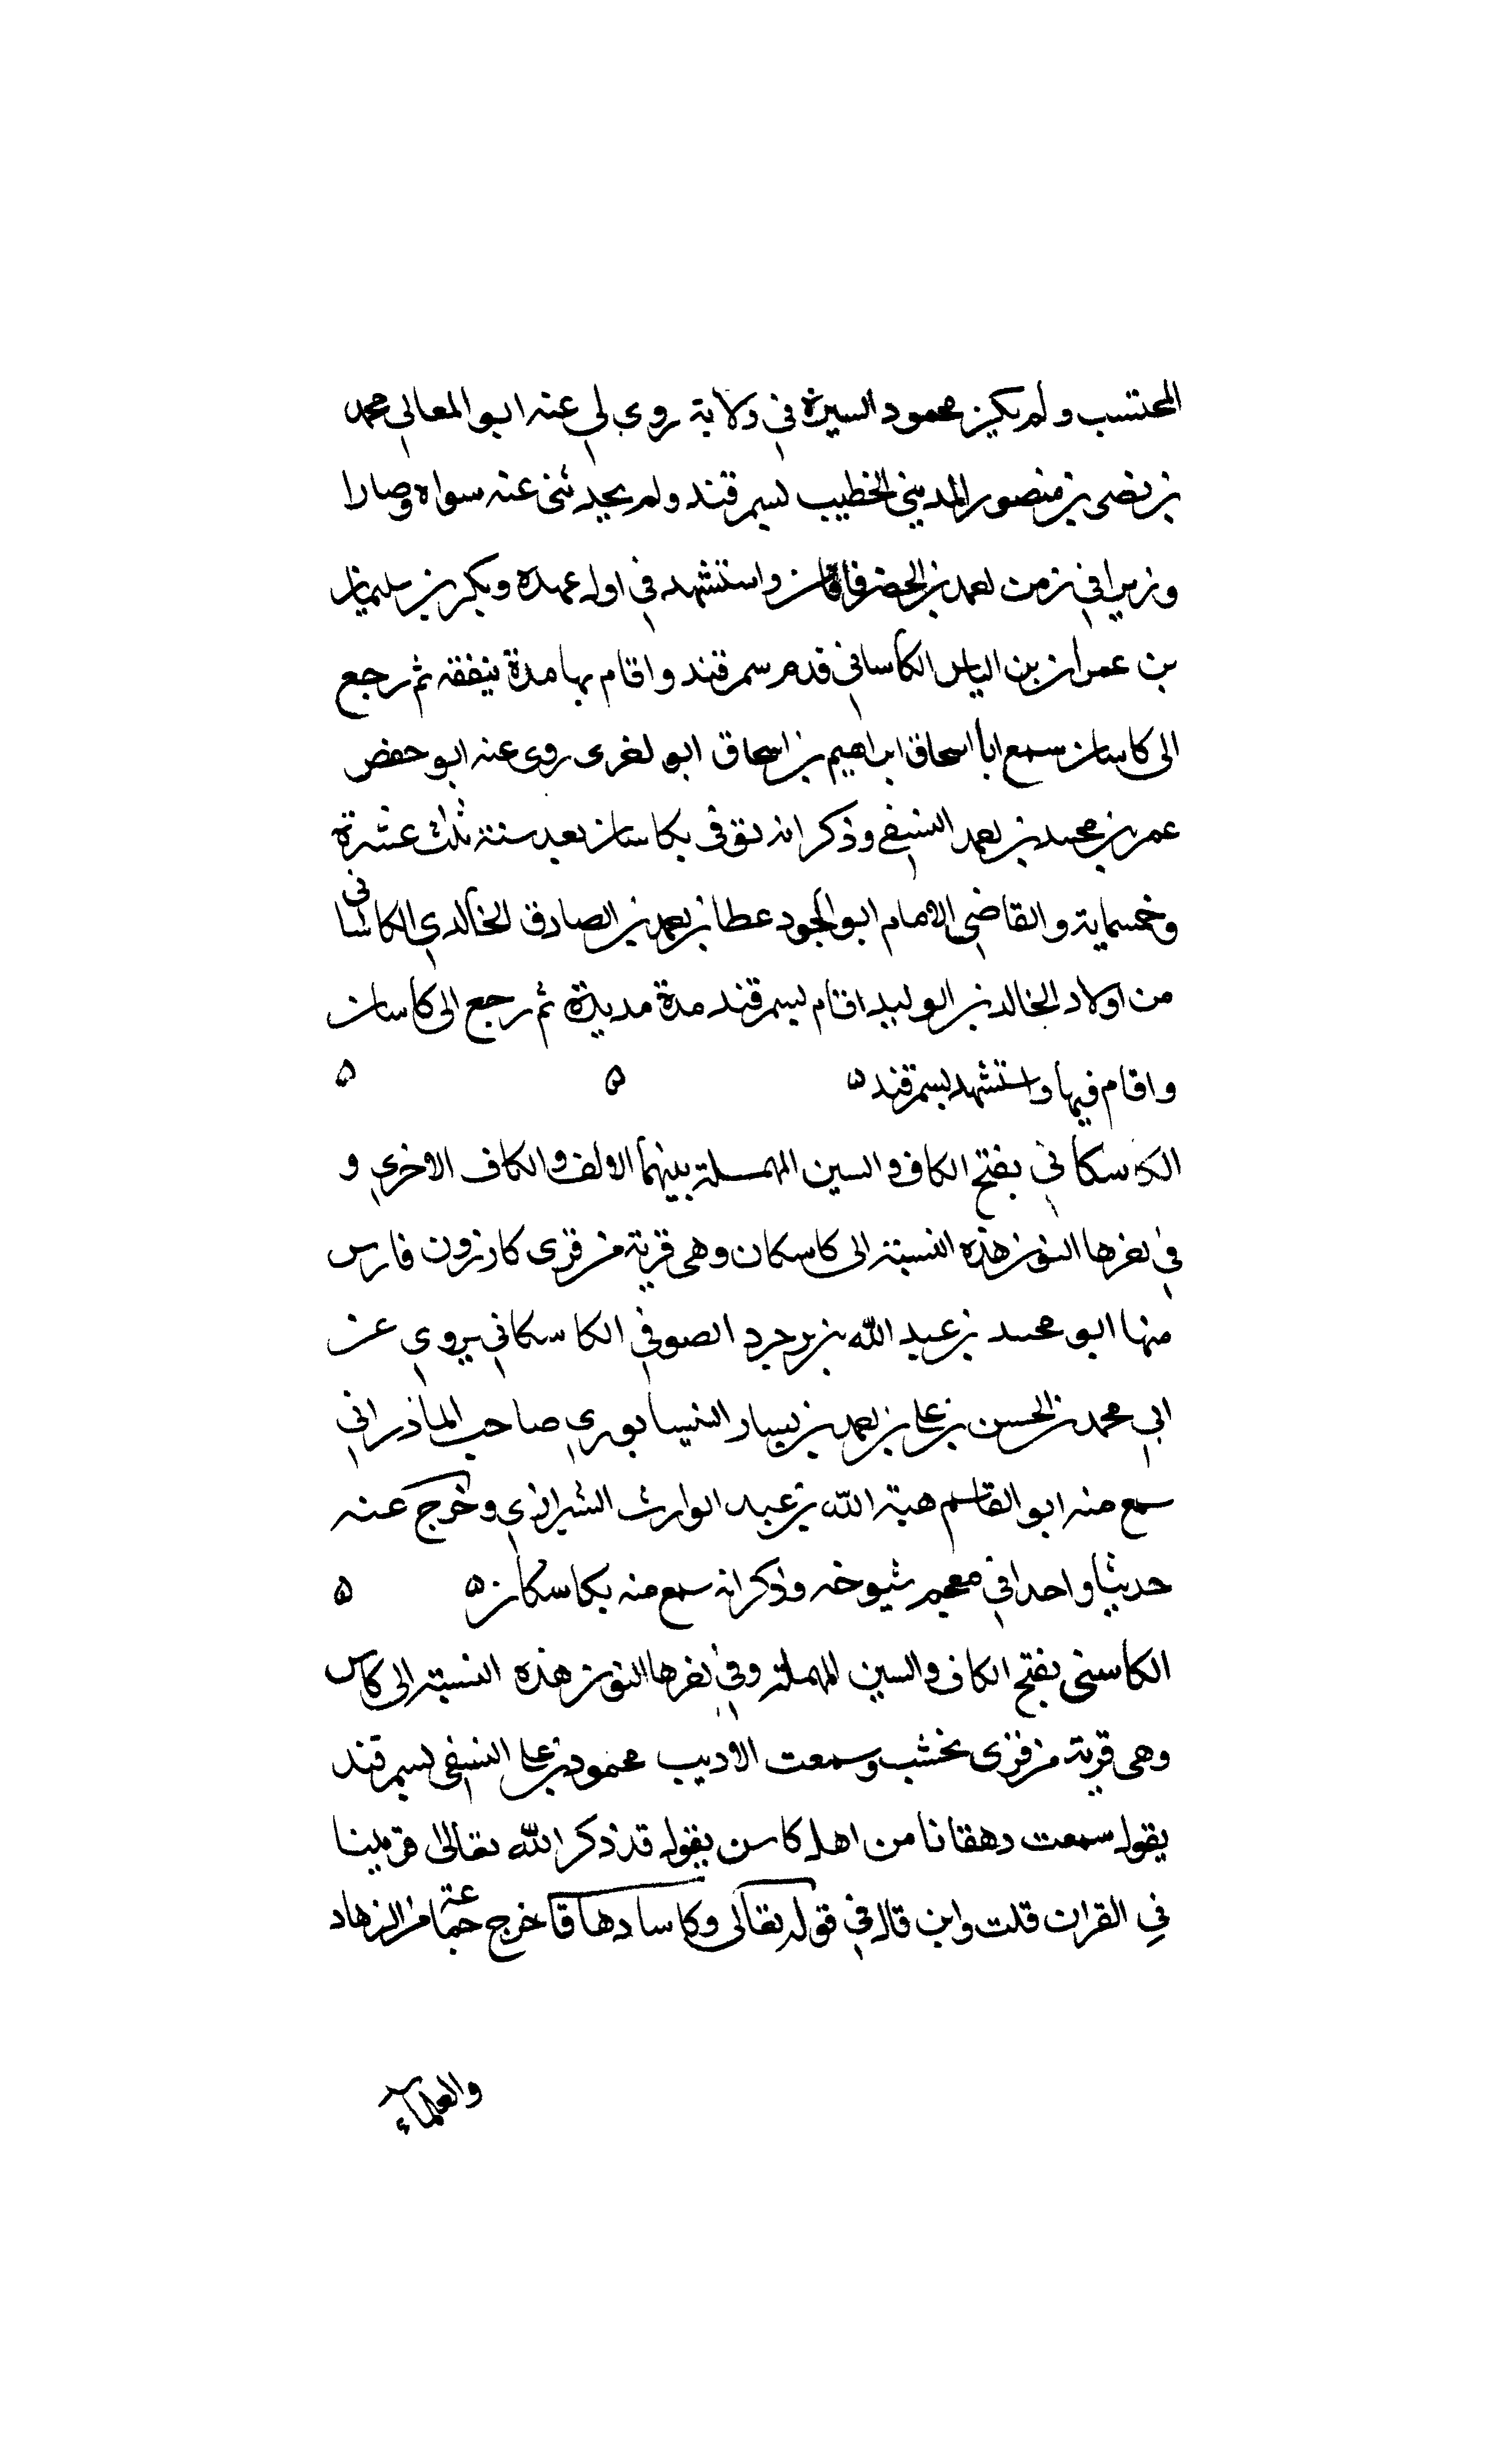 المحتسب ولم يكن محمود السيرة في ولاية روى لي عنه ابو المعالي محمد
بن نصر بن منصور المديني الخطيب بسمرقند ولم يحدثني عنه سواه وصارا
وزيرا في زمن احمد بن الخضر خاقان واستشهد في اول عهده وبكر بن سليمان
بن عمران بن الياس الكاساني قدم سمرقند واقام بها مدة يتفقه ثم رجع
الى كاسان سمع ابا اسحاق ابراهيم بن اسحاق ابو لغرى روى عنه ابو حفص
عمر بن محمد بن احمد النسفي وذكر انه توفي بكاسان بعد سنة ثلث عشرة
وخمسماية والقاضي الامام ابو الجود عطا بن احمد بن الصادق الخالدي الكاساني
من اولاد الخالد بن الوليد اقام بسمرقند مدة مديدة ثم رجع الى كاسان
واقام فيها واستشهد بسمرقند ه ه ه
الكاسكاني بفتح الكاف والسين المهملة بينهما الالف والكاف الاخرى و
في اخرها النون هذه النسبة الى كاسكان وهي قرية من قرى كازرون فارس
منها ابو محمد بن عبد الله بن برجرد الصوفي الكاسكاني يروي عن
ابي محمد بن الحسن بن علي بن احمد بن يسار النيسابوري صاحب الماذراني
سمع منه ابو القاسم هبة الله بن عبد الوارث الشيرازي وخرج عنه
حديثا واحدا في معجم شيوخه وذكر انه سمع منه بكاسكان ه ه
الكاسني بفتح الكاف والسين المهملة وفي اخرها النون هذه النسبة الى كاسن
وهي قرية من قرى نخشب وسمعت الاديب محمود بن علي النسفي بسمرقند
يقول سمعت دهقانا من اهل كاسن يقول قد ذكر الله تعالى قريتنا
في القران قلت واين قال في قوله تعالى وكاسا دهاقا خرج جماعة من الزهاد
والعلماء